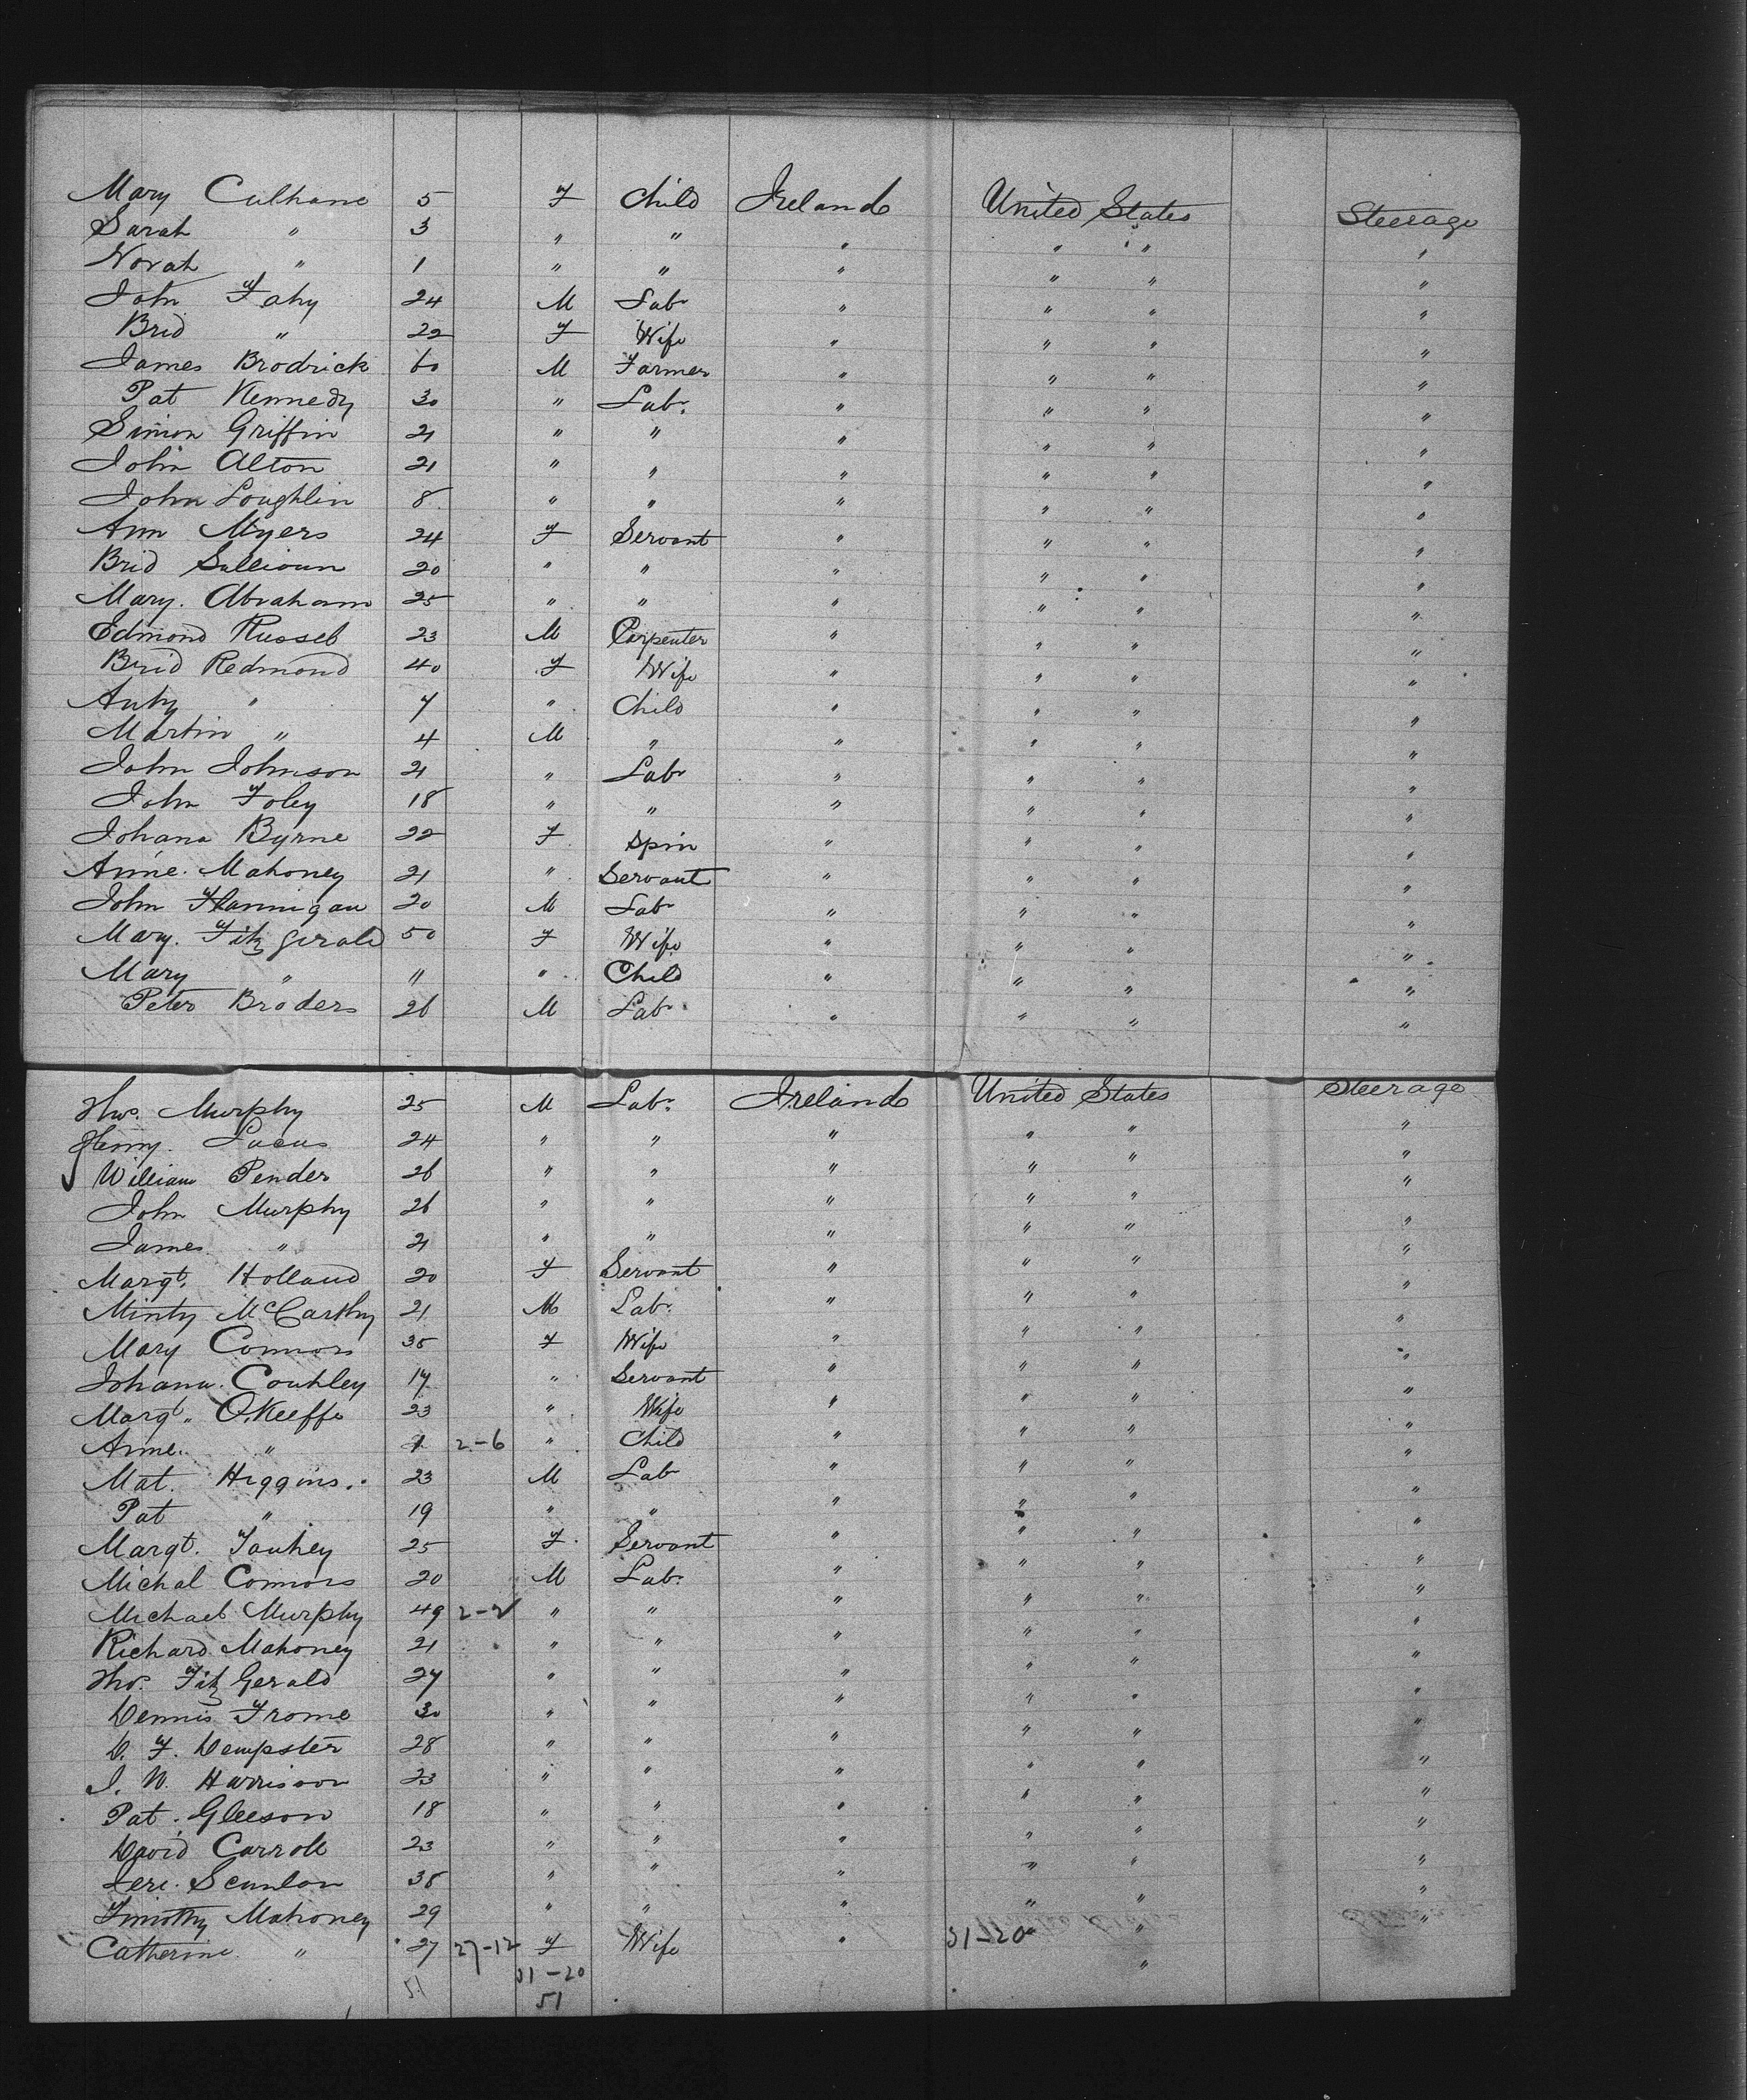 Mary Culhane 5 F Child Ireland United States Steerage
Sarah " 3 " " " " " "
Norah " 1 " " " " " "
John Fahy 24 M Lab " " " "
Brid " 22 F Wife " " " "
James Brodrick 60 M Farmer " " " "
Pat Kennedy 30 " Lab. " " " "
Simon Griffin 21 " " " " " "
John Alton 21 " " " " " "
John Loughlin 8 " " " " " "
Ann Myers 24 F Servant " " " "
Brid 20 " " " " " "
Mary. Abraham 25 " " " " " "
Edmond Russel 23 M Carpenter " " " "
Brid Redmond 40 F Wife " " " "
Anty " 7 " Child " " " "
Martin " 4 M " " " " "
John Johnson 21 " Lab " " " "
John Foley 18 " " " " " "
Johana Byrne 22 F Spin " " " "
Annie. Mahoney 21 " Servant " " " "
John Flannigan 20 M Lab " " " "
Mary. Fitz Gerald 50 F Wife " " " "
Mary " 11 " Child " " " "
Peter Broders 26 M Lab " " " "
Thos. Murphy 25 M Lab. Ireland United States Steerage
Henry. Lucus 24 " " " " " "
William Pender 26 " " " " " "
John Murphy 26 " " " " " "
James " 21 " " " " " "
Margt. Holland 20 F Servant " " " "
Minty McCarthy 21 M Lab. " " " "
Mary Connors 35 F Wife " " " "
Johana. Couhley 17 " Servant " " " "
Margt. O'Keeffe 23 " Wife " " " "
Anne. " 1 2-6 " Child " " " "
Mat. Higgins. 23 M Lab " " " "
Pat " 19 " " " " " "
Margt. 25 F Servant " " " "
Michal Connors 20 M Lab. " " " "
Michael Murphy 49 2-2 " " " " " "
Richard Mahoney 21 " " " " " "
Tho. Fitz Gerald 27 " " " " " "
Dennis Frome 30 " " " " " "
D. F. Dempster 28 " " " " " "
J. W. Harrison 23 " " " " " "
Pat. Gleeson 18 " " " " " "
David Carroll 23 " " " " " "
Jere. Scanlon 38 " " " " " "
Timothy Mahoney 29 " " " " " "
Catherine " 27 27-12 F Wife " 31-20 " "
51 31-20 "
51